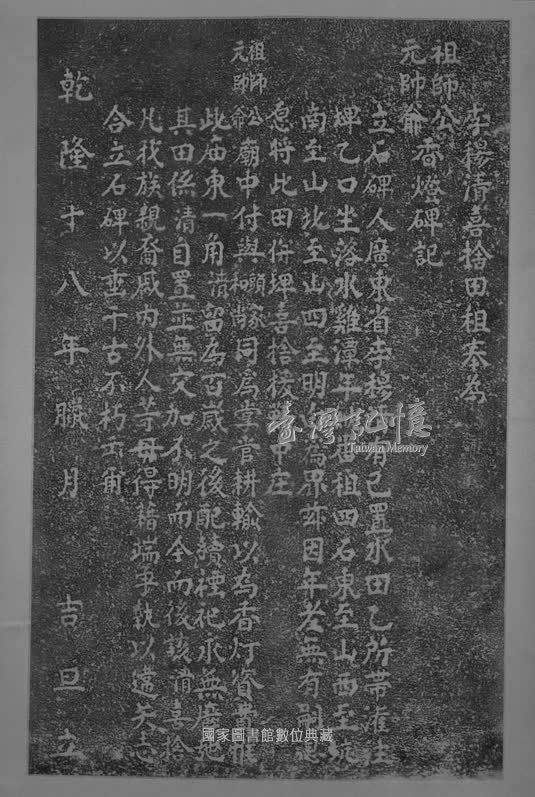 李楊清喜捨田租奉為
祖師公
元帥爺香燈碑記
立石碑人廣東省李楊清有己置水田乙所帶灌注
埤乙口坐落水雞潭年
租四石東至山西至坑
南至山北至山四至明
為界茲因年老無有嗣息
愿將此田併埤喜捨
中庄
祖師公
元帥爺廟中付與頭家和尚同為掌管耕輸以為香灯資費
此庙東一角清留為百歲之後配續禋祀永無廢弛
其田係清自置並無交加不明而今而後該甫喜捨
凡我族親裔戚內外人等毋得藉端爭執以違矢志
合立石碑以垂千古不朽云爾
乾隆十八年臘月 吉旦立
臺灣記憶
Taiwan Memory
國家圖書館數位典藏